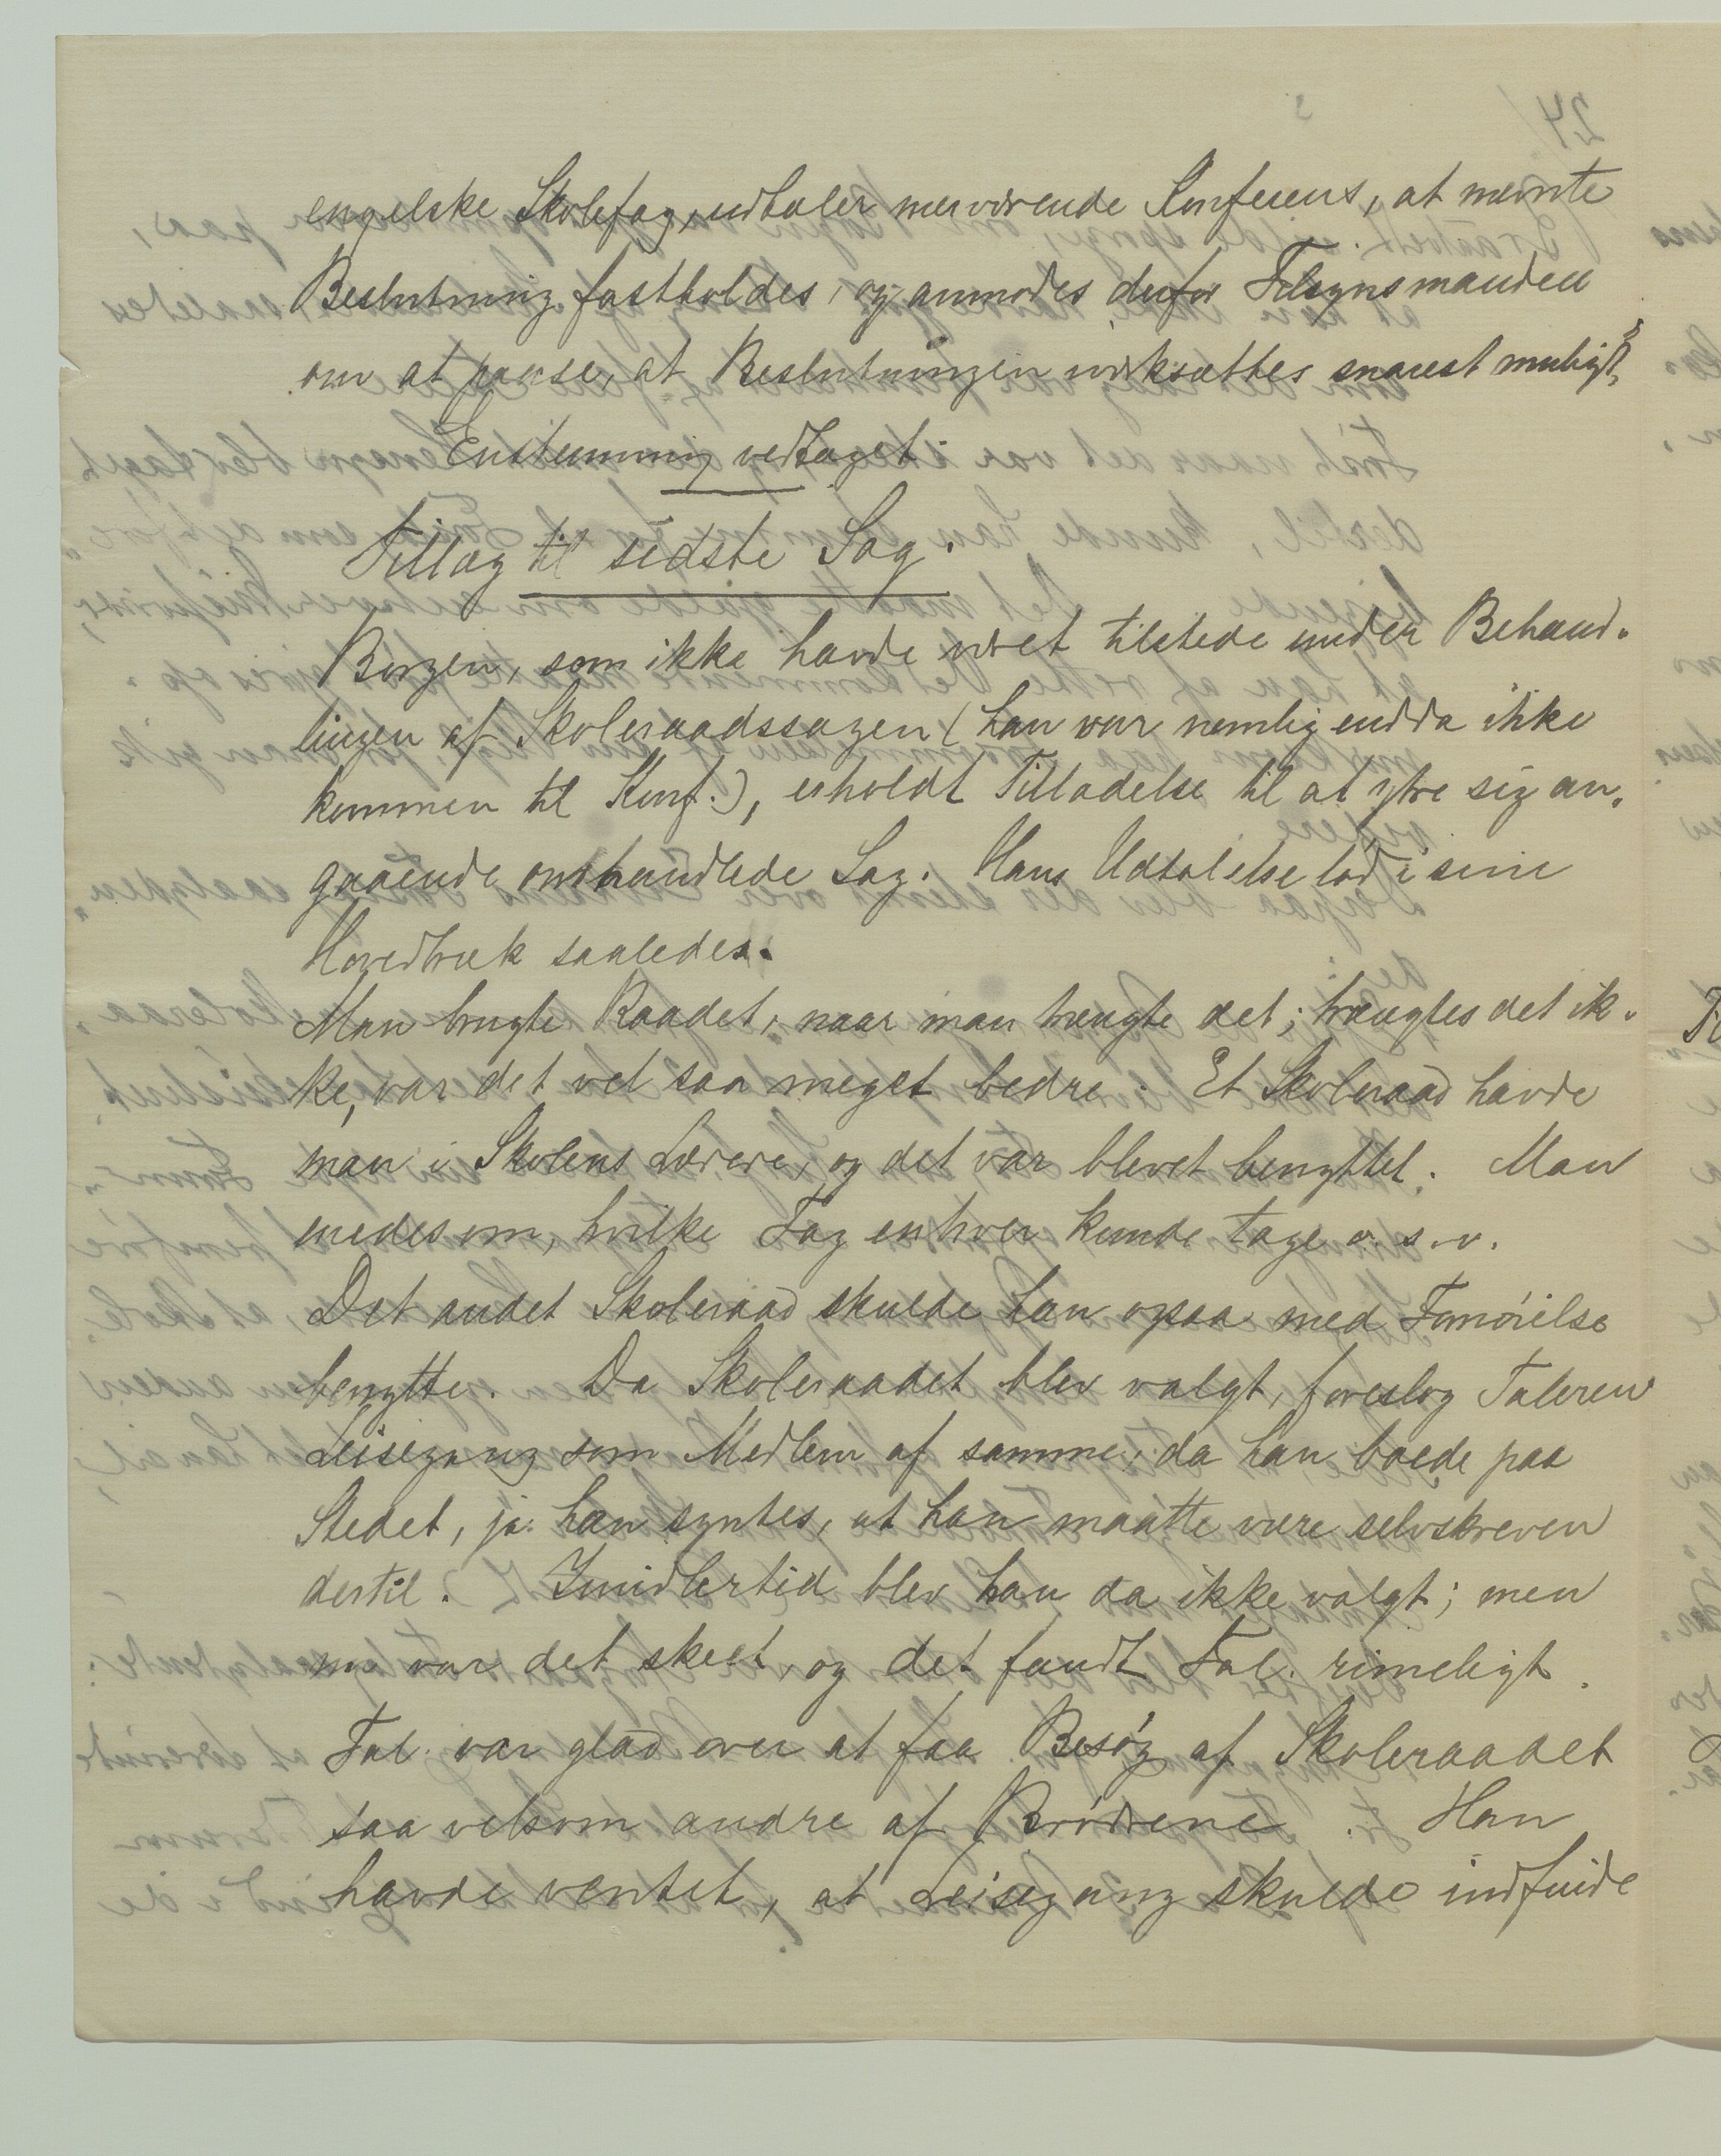 engelske Skolefag, udtaler nærværende Konferens, at nævnte
Beslutning fastholdes, og anmodes derfor Tilsynsmanden
om at paase, at Beslutningen iværksættes snarest muligt.
Enstemmig vedtaget.
Tillæg til sidste Sag.
Borgen, som ikke havde været tilstede under Behand-
lingen af Skoleraadssagen (han var nemlig endda ikke
kommen til Konf.), erholdt Tilladelse til at ytre sig an-
gaaende omhandlede Sag. Hans Udtalelse lød i sine
Hovedtræk saaledes.
Man brugte Raadet, naar man trængte det; trængtes det ik-
ke, var det vel saa meget bedre. Et Skoleraad havde
man i Skolens Lærere, og det var blevet benyttet. Man
enedes om, hvilke Fag enhver kunde tage o. s. v.
Det andet Skoleraad skulde han ogsaa med Fornøielse
benytte. Da Skoleraadet blev valgt, foreslog Taleren
Leisegang som Medlem af samme, da han boede paa
Stedet, ja han syntes, at han maatte være selvskreven
dertil. Imidlertid blev han da ikke valgt; men
nu var det skeet, og det fandt Tal. rimeligt.
Tal. var glad over at faa Besøg af Skoleraadet
saa velsom andre af Brødrene. Han
havde ventet, at Leisegang skulde indfinde